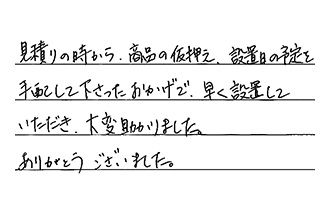 見積りの時から、商品の仮押え、設置日の予定を
手配して下さったおかげで、早く設置して
いただき、大変助かりました。
ありがとうございました。